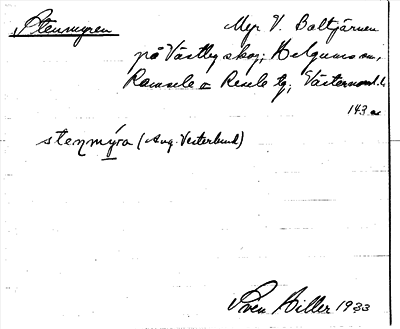 Stenmyren Myr V. Baltjärnen
på Västby skog; Helgums sn,
Ramsele o Resele tg; Västernorrl. l.
143
stenmýra (Aug. Vesterlund)
Sven Hiller 1933